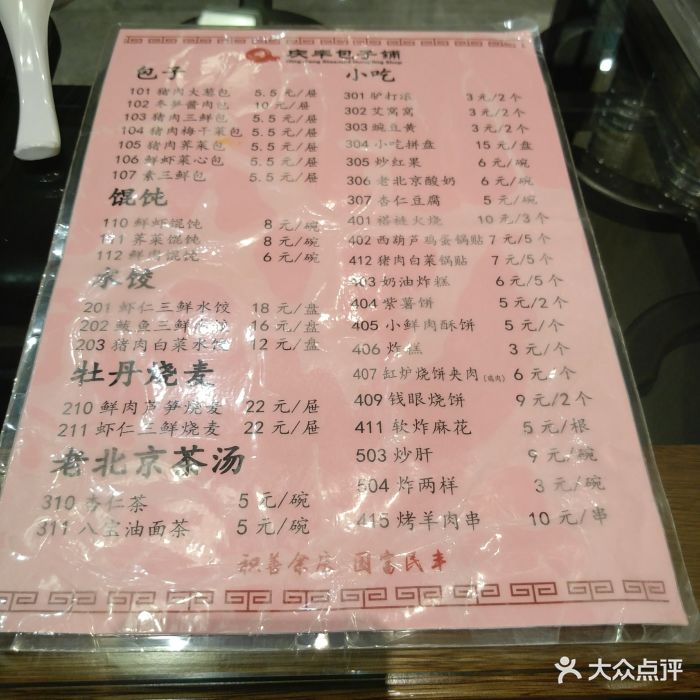 庆丰包子铺
包子
101 猪肉大葱包 5.5元/屉
102 冬笋酱肉包 10元/屉
103 猪肉三鲜包 5.5元/屉
104 猪肉梅干菜包 5.5元/屉
105 猪肉荠菜包 5.5元/屉
106 鲜虾菜心包 5.5元/屉
107 素三鲜包 5.5元/屉
馄饨
110 鲜虾馄饨 8元/碗
111 荠菜馄饨 8元/碗
112 鲜肉馄饨 6元/碗
水饺
201 虾仁三鲜水饺 18元/盘
202 鲅鱼三鲜水饺 16元/盘
203 猪肉白菜水饺 12元/盘
牡丹烧麦
210 鲜肉芦笋烧麦 22元/屉
211 虾仁三鲜烧麦 22元/屉
老北京茶汤
310 杏仁茶 5元/碗
311 八宝油面茶 5元/碗
小吃
301 驴打滚 3元/2个
302 艾窝窝 3元/2个
303 豌豆黄 3元/2个
304 小吃拼盘 15元/盘
305 炒红果 6元/碗
306 老北京酸奶 6元/碗
307 杏仁豆腐 5元/碗
401 褡裢火烧 10元/3个
402 西葫芦鸡蛋锅贴 7元/5个
412 猪肉白菜锅贴 7元/5个
403 奶油炸糕 6元/5个
404 紫薯饼 5元/2个
405 小鲜肉酥饼 5元/个
406 炸糕 3元/个
407 缸炉烧饼夹肉(鸡肉) 6元/个
409 钱眼烧饼 9元/2个
411 软炸麻花 5元/根
503 炒肝 9元/碗
504 炸两样 3元/碗
415 烤羊肉串 10元/串
积善余庆 国富民丰
大众点评